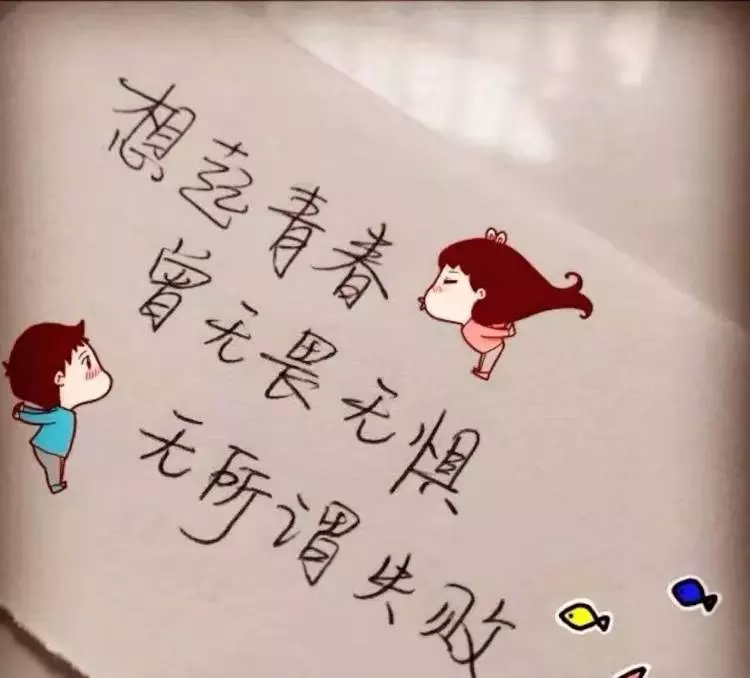 想起青春
曾无畏无惧
无所谓失败